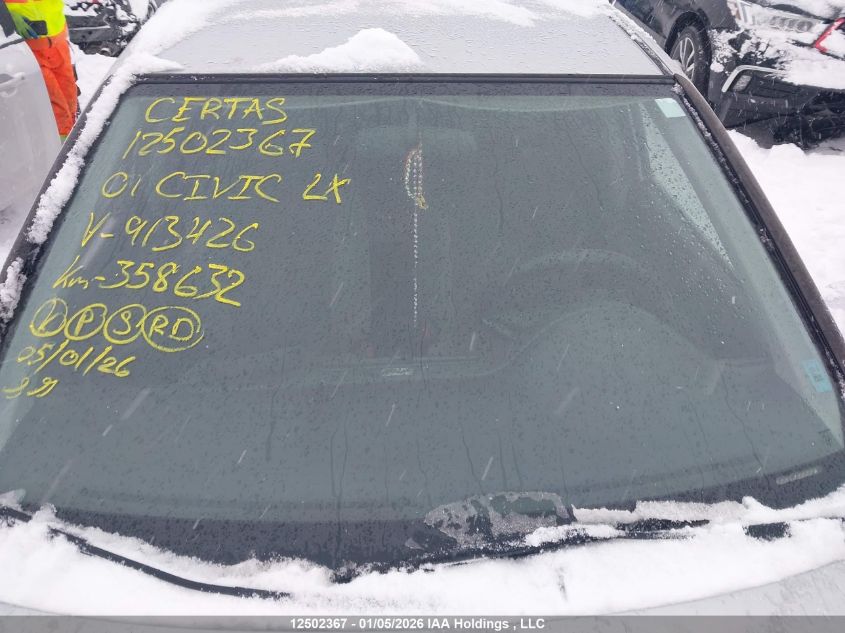 CERTAS
12502367
01 CIVIC LX
V-913426
Km-358632
P S RD
05/01/26
12502367 - 01/05/2026 IAA Holdings , LLC